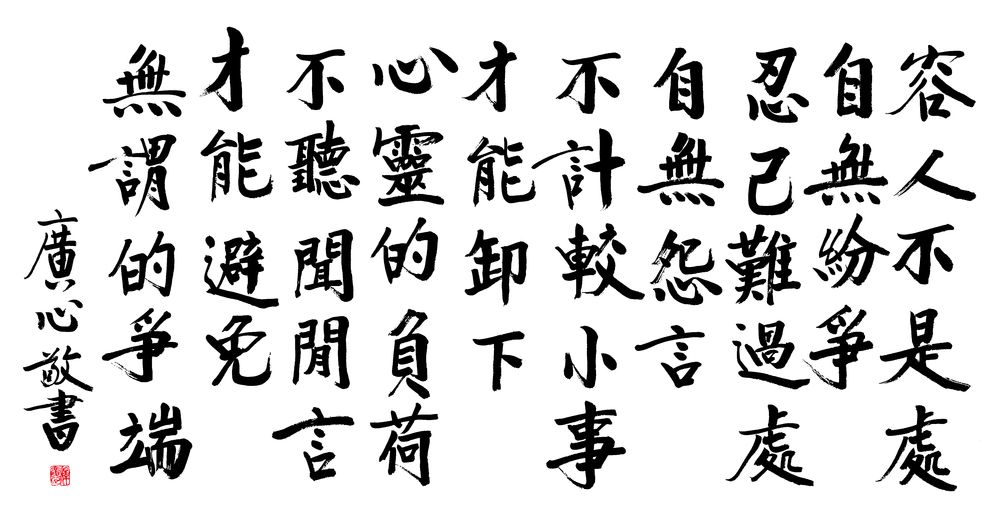 容人不是處
自無紛爭
忍己難過處
自無怨言
不計較小事
才能卸下
心靈的負荷
不聽聞閒言
才能避免
無謂的爭端
廣心敬書